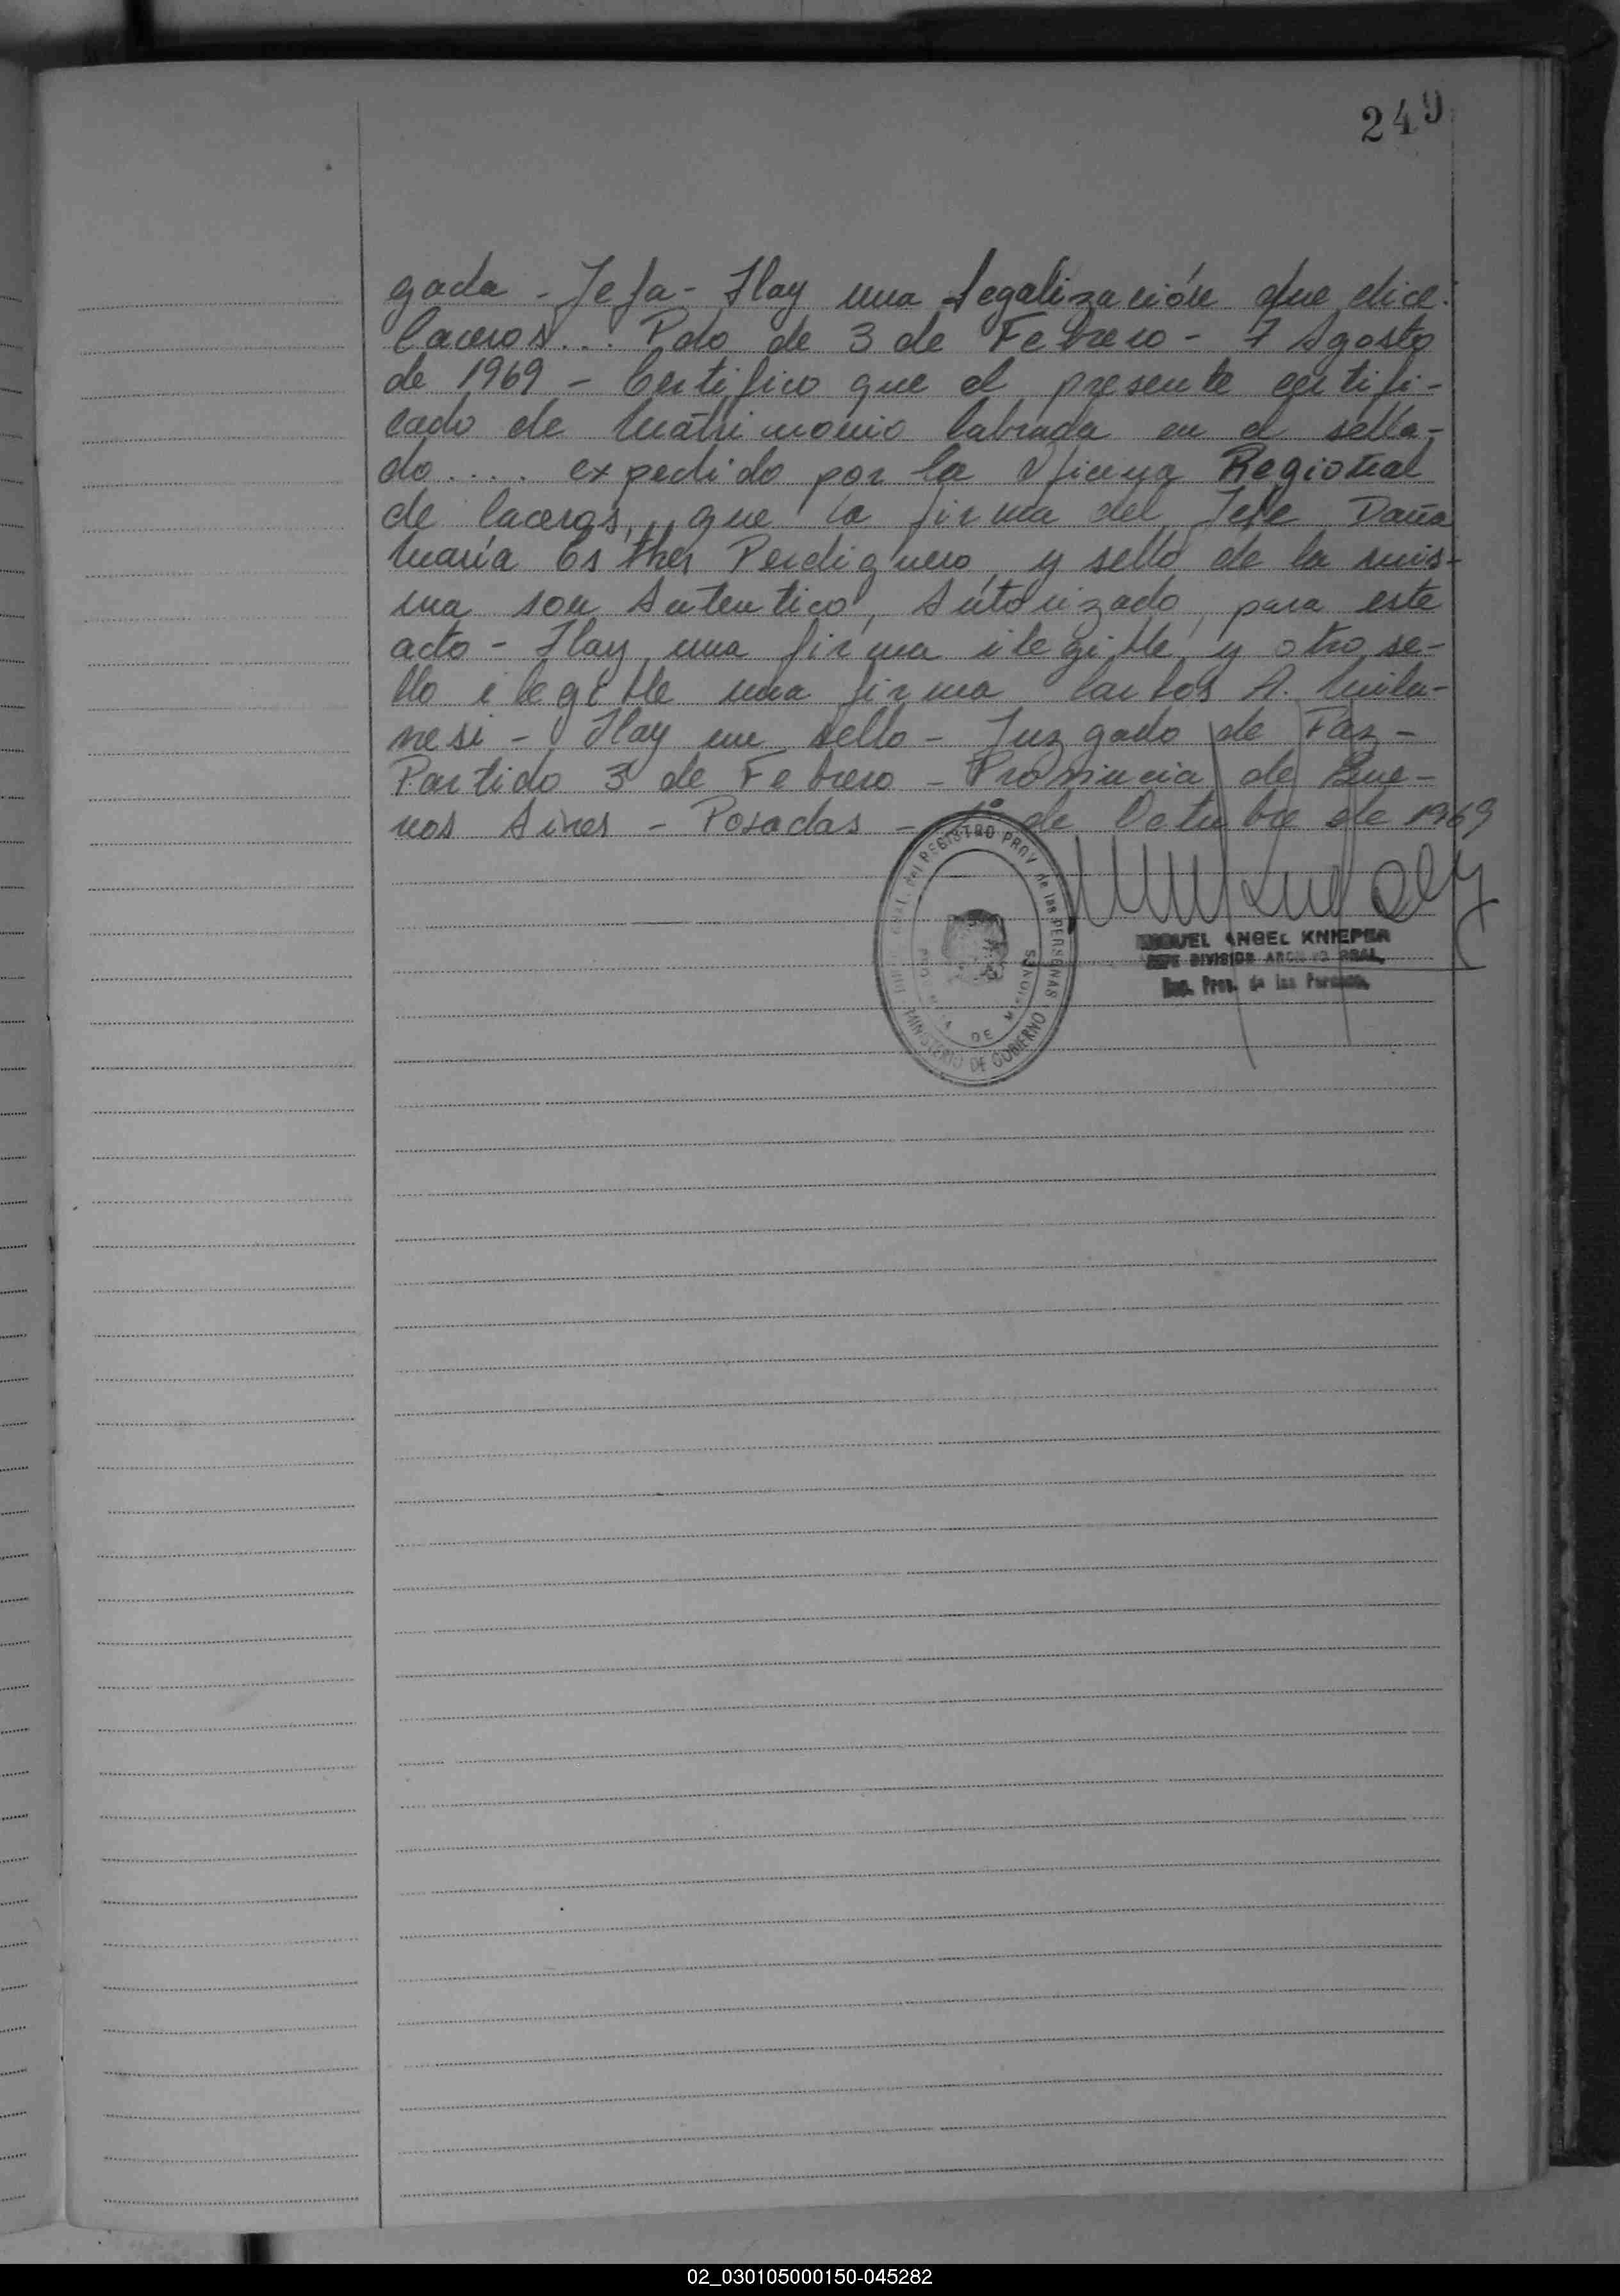 249
gada - Jefa - Hay una Legalización que dice.
Caseros... Pdo de 3 de Febrero - 7 Agosto
de 1969 - Certifico que el presente certifi-
cado de Matrimonio labrada en el sella-
do .... expedido por la Oficina Regional
de Caseros, que la firma del Jefe Doña
María Esther Perdiguero, y sello de la mis-
ma son Autentico, Autorizado, para este
acto - Hay una firma ilegible y otro se-
llo ilegible una firma Carlos A. Mila-
nesi - Hay un sello - Juzgado de Paz -
Partido 3 de Febrero - Provincia de Bue-
nos Aires - Posadas - 1º de Octubre de 1969
del REGISTRO PROV. de las PERSONAS
MINISTERIO DE GOBIERNO
DE MISIONES
MIGUEL ANGEL KNIEPER
JEFE DIVISION ARCHIVO GRAL.
Reg. Prov. de las Personas
02_030105000150-045282